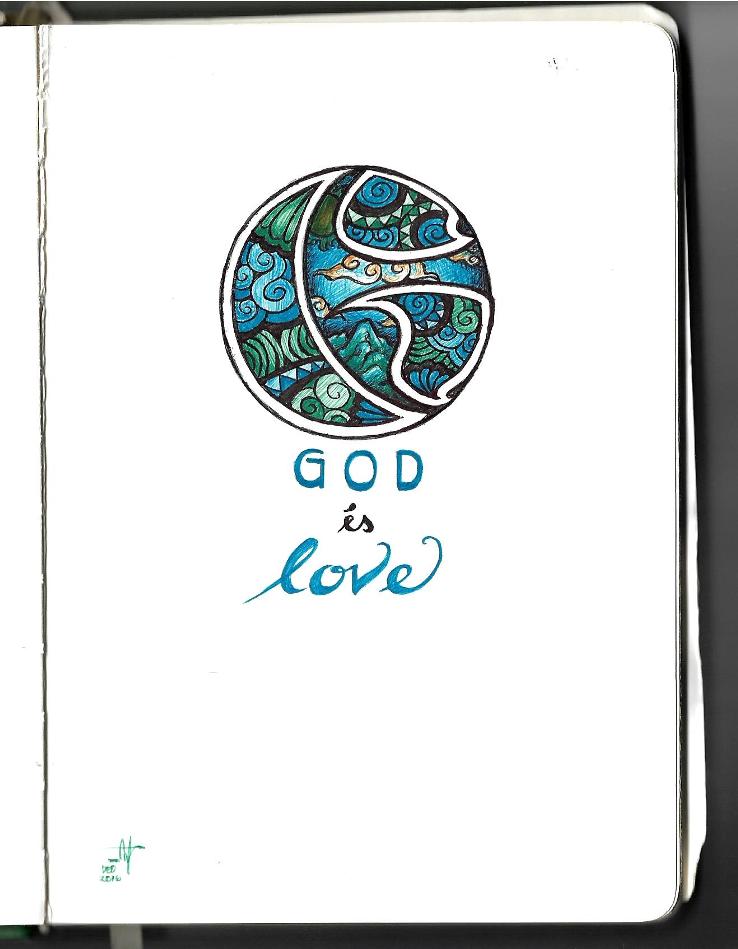 GOD
és
love
2016